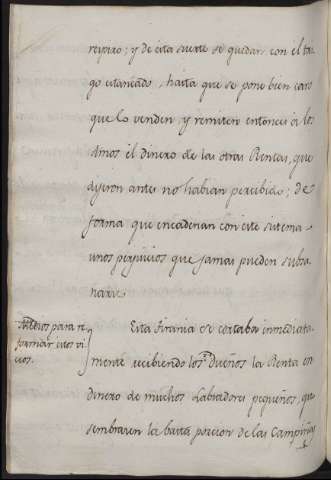 reparo; y de esta suerte se quedan con el tri
go estancado, hasta que se pone bien caro
que lo venden, y remiten entonces á los
Amos el dinero de las otras Rentas, que
dijeron antes no habian percebido; de
forma que encadenan con este sistema
unos perjuicios que jamas pueden subsa
narse.
Medios para re
formar estos vi
cios.
Esta tirania se cortaba inmediata
mente recibiendo los Dueños la Renta en
dinero de muchos Labradores pequeños, que
sembrasen la basta porcion de las Campiñas